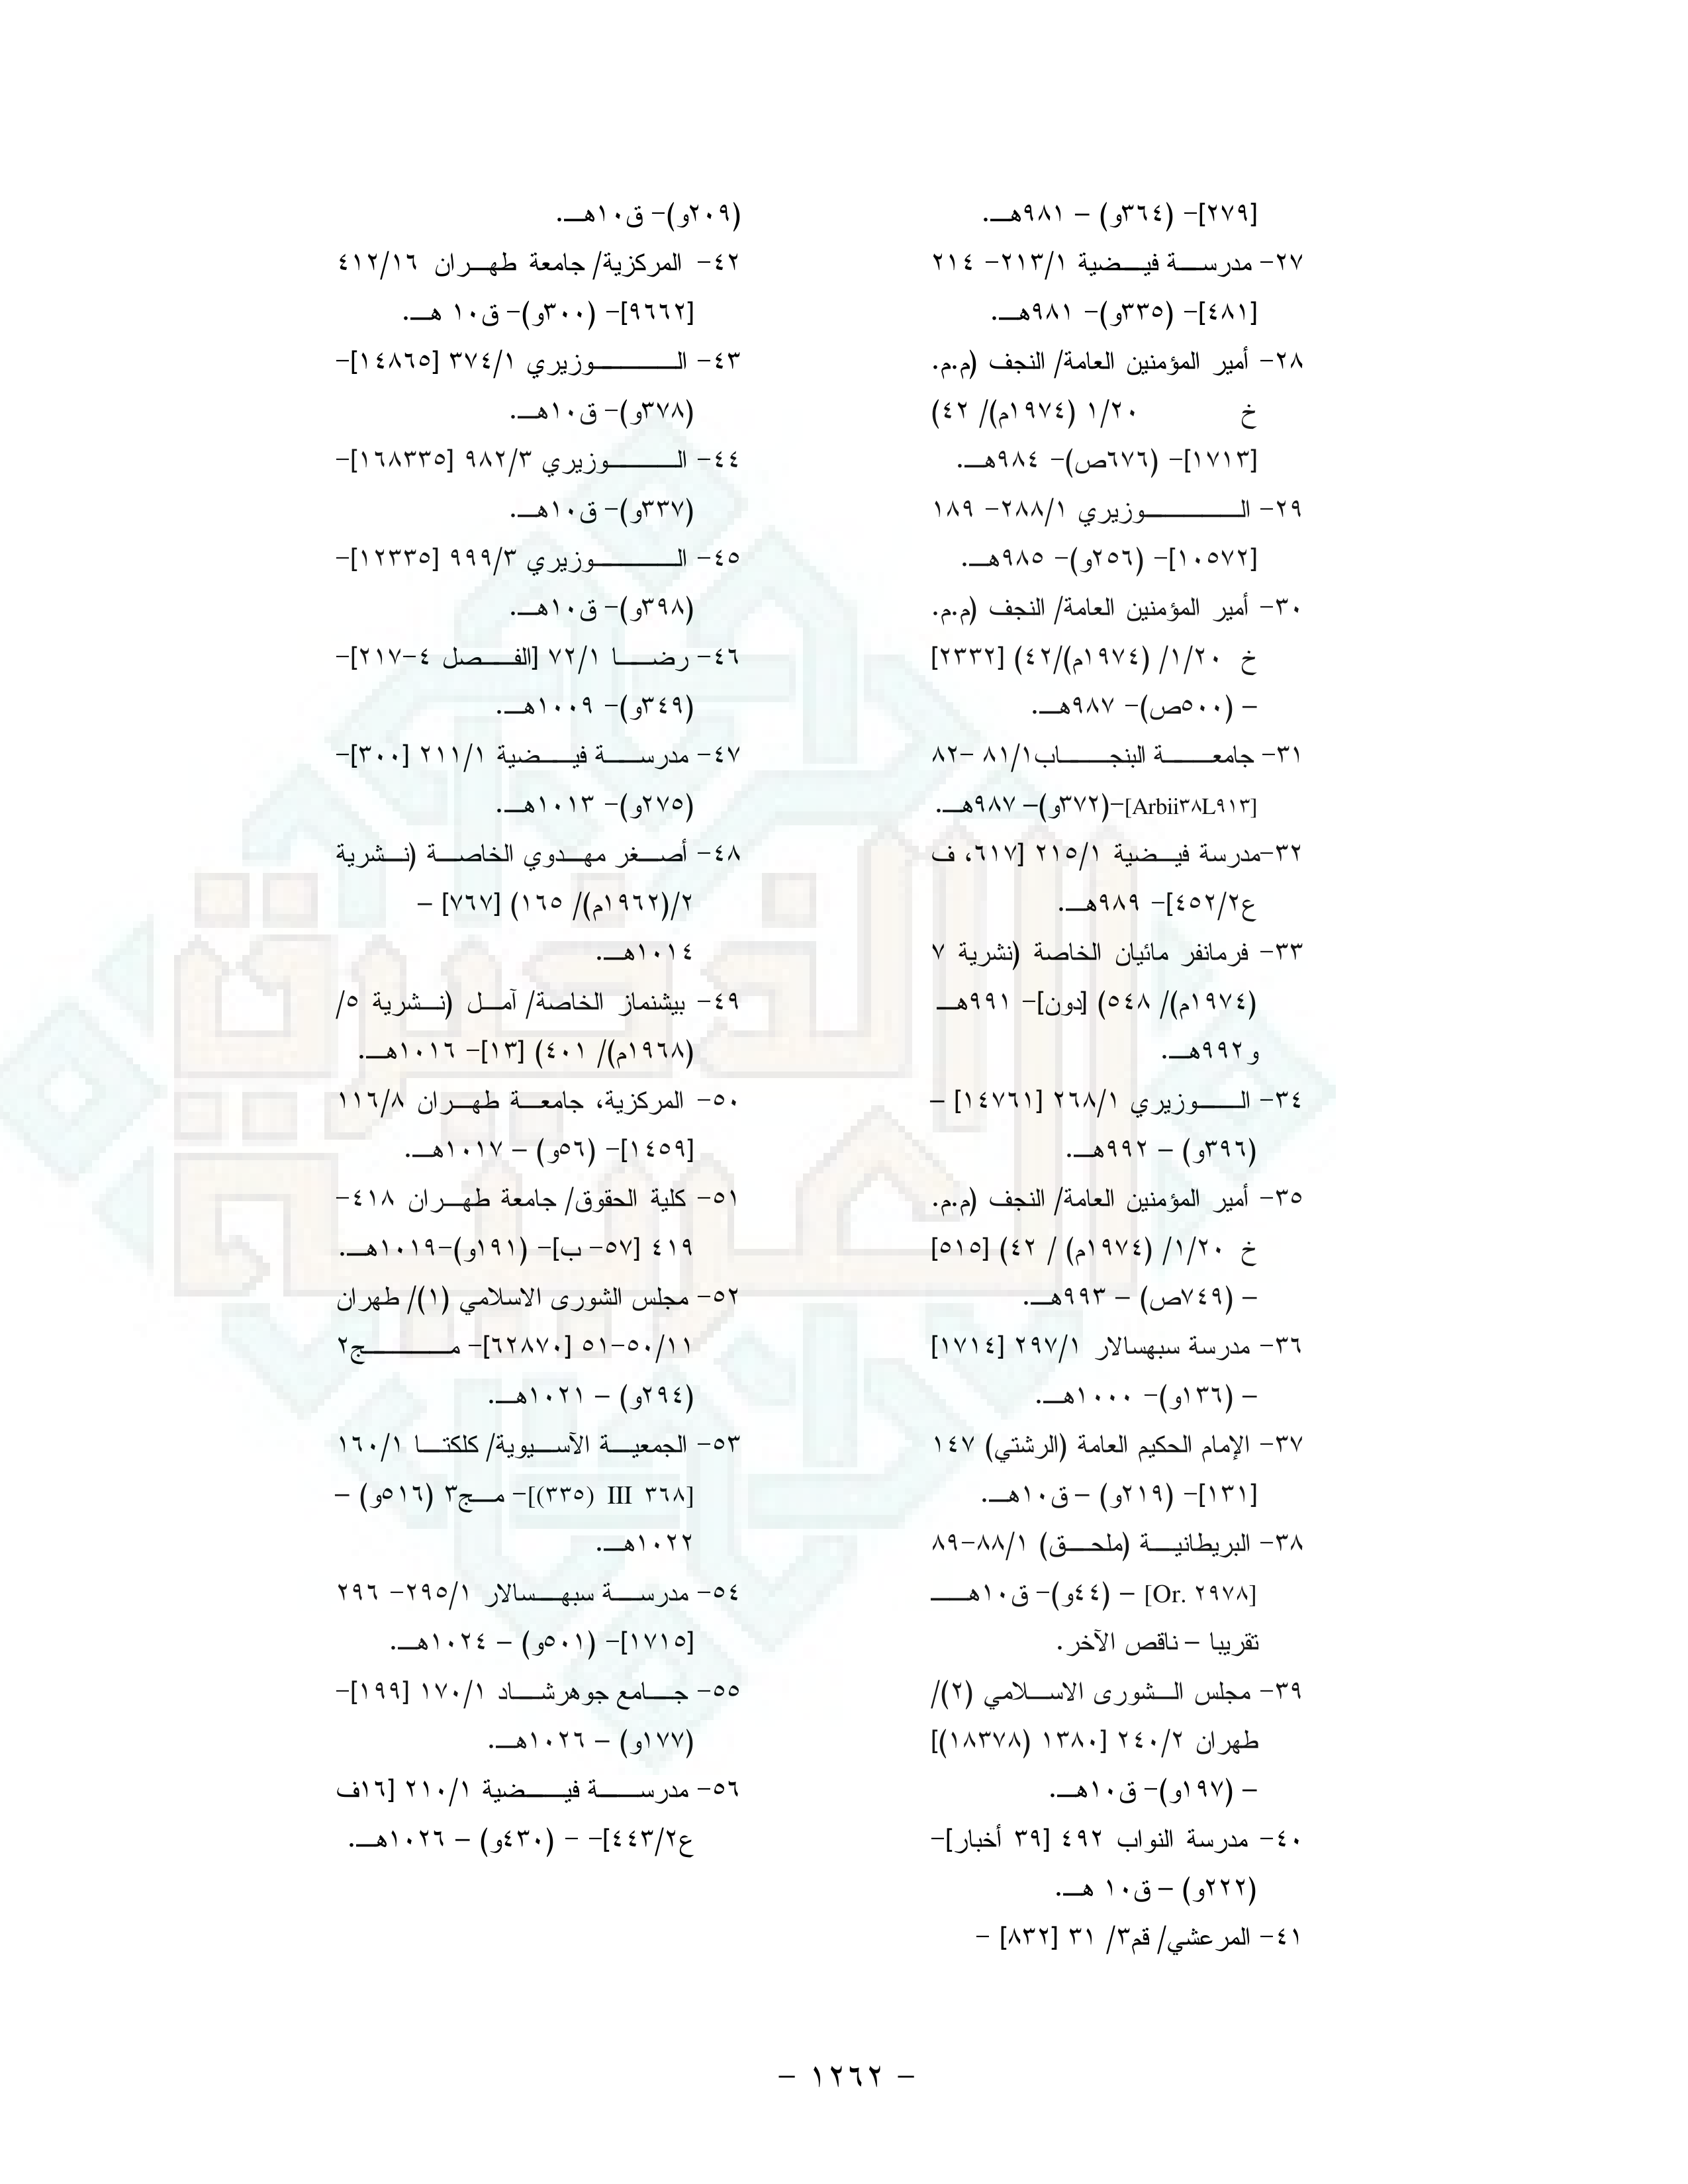 [٢٧٩]- (٣٦٤و) – ٩٨١هـ.
٢٧- مدرسة فيضية ٢١٣/١- ٢١٤
[٤٨١]- (٣٣٥و)- ٩٨١هـ.
٢٨- أمير المؤمنين العامة/ النجف (م.م.
خ ١/٢٠ (١٩٧٤م)/ ٤٢)
[١٧١٣]- (٦٧٦ص)- ٩٨٤هـ.
٢٩- الوزيري ٢٨٨/١- ١٨٩
[١٠٥٧٢]- (٢٥٦و)- ٩٨٥هـ.
٣٠- أمير المؤمنين العامة/ النجف (م.م.
خ ١/٢٠/ (١٩٧٤م)/٤٢) [٢٣٣٢]
– (٥٠٠ص)- ٩٨٧هـ.
٣١- جامعة البنجاب٨١/١ -٨٢
[Arbii٣٨L٩١٣]-(٣٧٢و)- ٩٨٧هـ.
٣٢-مدرسة فيضية ٢١٥/١ [٦١٧، ف
ع٤٥٢/٢]- ٩٨٩هـ.
٣٣- فرمانفر مائيان الخاصة (نشرية ٧
(١٩٧٤م)/ ٥٤٨) [دون]- ٩٩١هـ
و٩٩٢هـ.
٣٤- الوزيري ٢٦٨/١ [١٤٧٦١] –
(٣٩٦و) – ٩٩٢هـ.
٣٥- أمير المؤمنين العامة/ النجف (م.م.
خ ١/٢٠/ (١٩٧٤م) / ٤٢) [٥١٥]
– (٧٤٩ص) – ٩٩٣هـ.
٣٦- مدرسة سبهسالار ٢٩٧/١ [١٧١٤]
– (١٣٦و)- ١٠٠٠هـ.
٣٧- الإمام الحكيم العامة (الرشتي) ١٤٧
[١٣١]- (٢١٩و) – ق١٠هـ.
٣٨- البريطانية (ملحق) ٨٨/١-٨٩
[Or. ٢٩٧٨] – (٤٤و)- ق١٠هـ
تقريبا – ناقص الآخر.
٣٩- مجلس الشورى الاسلامي (٢)/
طهران ٢٤٠/٢ [١٣٨٠ (١٨٣٧٨)]
– (١٩٧و)- ق١٠هـ.
٤٠- مدرسة النواب ٤٩٢ [٣٩ أخبار]-
(٢٢٢و) – ق١٠ هـ.
٤١- المرعشي/ قم٣/ ٣١ [٨٣٢] -
(٢٠٩و)- ق١٠هـ.
٤٢- المركزية/ جامعة طهران ٤١٢/١٦
[٩٦٦٢]- (٣٠٠و)- ق١٠ هـ.
٤٣- الوزيري ٣٧٤/١ [١٤٨٦٥]-
(٣٧٨و)- ق١٠هـ.
٤٤- الوزيري ٩٨٢/٣ [١٦٨٣٣٥]-
(٣٣٧و)- ق١٠هـ.
٤٥- الوزيري ٩٩٩/٣ [١٢٣٣٥]-
(٣٩٨و)- ق١٠هـ.
٤٦- رضا ٧٢/١ [الفصل ٤-٢١٧]-
(٣٤٩و)- ١٠٠٩هـ.
٤٧- مدرسة فيضية ٢١١/١ [٣٠٠]-
(٢٧٥و)- ١٠١٣هـ.
٤٨- أصغر مهدوي الخاصة (نشرية
٢/(١٩٦٢م)/ ١٦٥) [٧٦٧] –
١٠١٤هـ.
٤٩- بيشنماز الخاصة/ آمل (نشرية ٥/
(١٩٦٨م)/ ٤٠١) [١٣]- ١٠١٦هـ.
٥٠- المركزية، جامعة طهران ١١٦/٨
[١٤٥٩]- (٥٦و) – ١٠١٧هـ.
٥١- كلية الحقوق/ جامعة طهران ٤١٨-
٤١٩ [٥٧- ب]- (١٩١و)-١٠١٩هـ.
٥٢- مجلس الشورى الاسلامي (١)/ طهران
٥٠/١١-٥١ [٦٢٨٧٠]- مج٢
(٢٩٤و) – ١٠٢١هـ.
٥٣- الجمعية الآسيوية/ كلكتا ١٦٠/١
[٣٦٨ III (٣٣٥)]- مج٣ (٥١٦و) –
١٠٢٢هـ.
٥٤- مدرسة سبهسالار ٢٩٥/١- ٢٩٦
[١٧١٥]- (٥٠١و) – ١٠٢٤هـ.
٥٥- جامع جوهرشاد ١٧٠/١ [١٩٩]-
(١٧٧و) – ١٠٢٦هـ.
٥٦- مدرسة فيضية ٢١٠/١ [١٦ف
ع٤٤٣/٢]- - (٤٣٠و) – ١٠٢٦هـ.
- ١٢٦٢ -